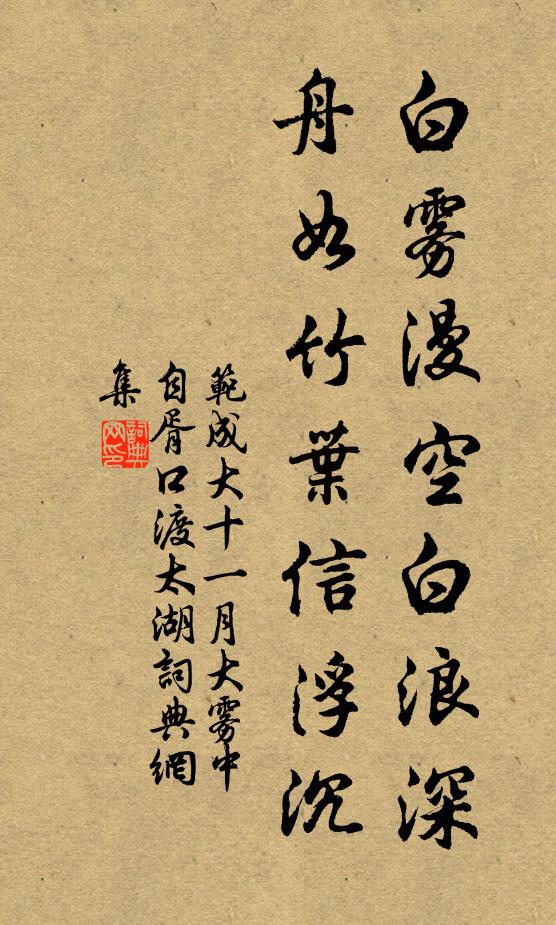 白雾漫空白浪深
舟如竹葉信浮沉
範成大十一月大雾中
自胥口渡太湖詞典網
集
詞典
网印